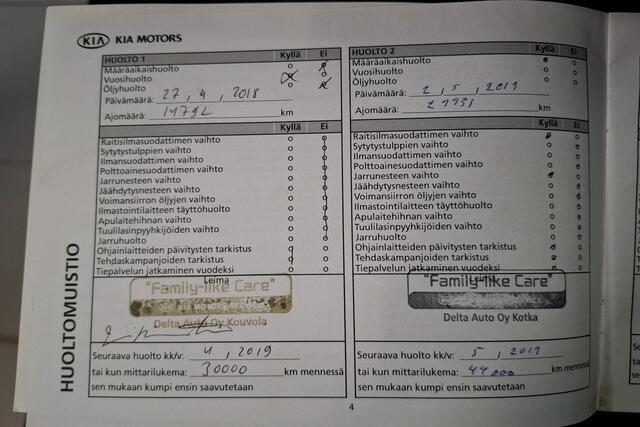 KIA KIA MOTORS
HUOLTOMUISTIO
HUOLTO 1 Kyllä Ei
Määräaikaishuolto
Vuosihuolto
Öljyhuolto
Päivämäärä: 27, 4, 2018
Ajomäärä: 14792 km
Kyllä Ei
Raitisilmasuodattimen vaihto
Sytytystulppien vaihto
Ilmansuodattimen vaihto
Polttoainesuodattimen vaihto
Jarrunesteen vaihto
Jäähdytysnesteen vaihto
Voimansiirron öljyjen vaihto
Ilmastointilaitteen täyttöhuolto
Apulaitehihnan vaihto
Tuulilasinpyyhkijöiden vaihto
Jarruhuolto
Ohjainlaitteiden päivitysten tarkistus
Tehdaskampanjoiden tarkistus
Tiepalvelun jatkaminen vuodeksi
Leima
"Family-like Care"
KIA MOTORS SERVICE
Delta Auto Oy Kouvola
Seuraava huolto kk/v: 4, 2019
tai kun mittarilukema: 30000 km mennessä
sen mukaan kumpi ensin saavutetaan
HUOLTO 2 Kyllä Ei
Määräaikaishuolto
Vuosihuolto
Öljyhuolto
Päivämäärä: 2, 5, 2019
Ajomäärä: km
Kyllä Ei
Raitisilmasuodattimen vaihto
Sytytystulppien vaihto
Ilmansuodattimen vaihto
Polttoainesuodattimen vaihto
Jarrunesteen vaihto
Jäähdytysnesteen vaihto
Voimansiirron öljyjen vaihto
Ilmastointilaitteen täyttöhuolto
Apulaitehihnan vaihto
Tuulilasinpyyhkijöiden vaihto
Jarruhuolto
Ohjainlaitteiden päivitysten tarkistus
Tehdaskampanjoiden tarkistus
Tiepalvelun jatkaminen vuodeksi
Leima
"Family-like Care"
SERVICE
Delta Auto Oy Kotka
Seuraava huolto kk/v: 5,
tai kun mittarilukema: 44000 km mennessä
sen mukaan kumpi ensin saavutetaan
4